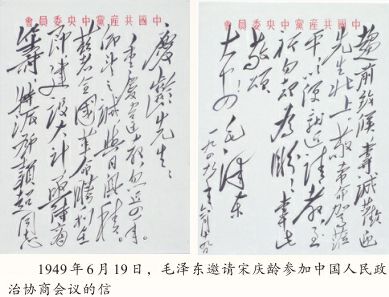 中國共產黨中央委員會
慶齡先生：
重慶違教，忽近四年。
仰望之誠，與日俱積。
茲者全國革命勝利在
即，建設大計，亟待商
籌，特派鄧穎超同志
中國共產黨中央委員會
趨前致候，專誠歡迎
先生北上。敬希命駕蒞
平，以便就近請教，至
祈勿却為盼！專此。
敬頌
大安！
毛澤東
一九四九年六月十九日
1949年6月19日，毛泽东邀请宋庆龄参加中国人民政
治协商会议的信